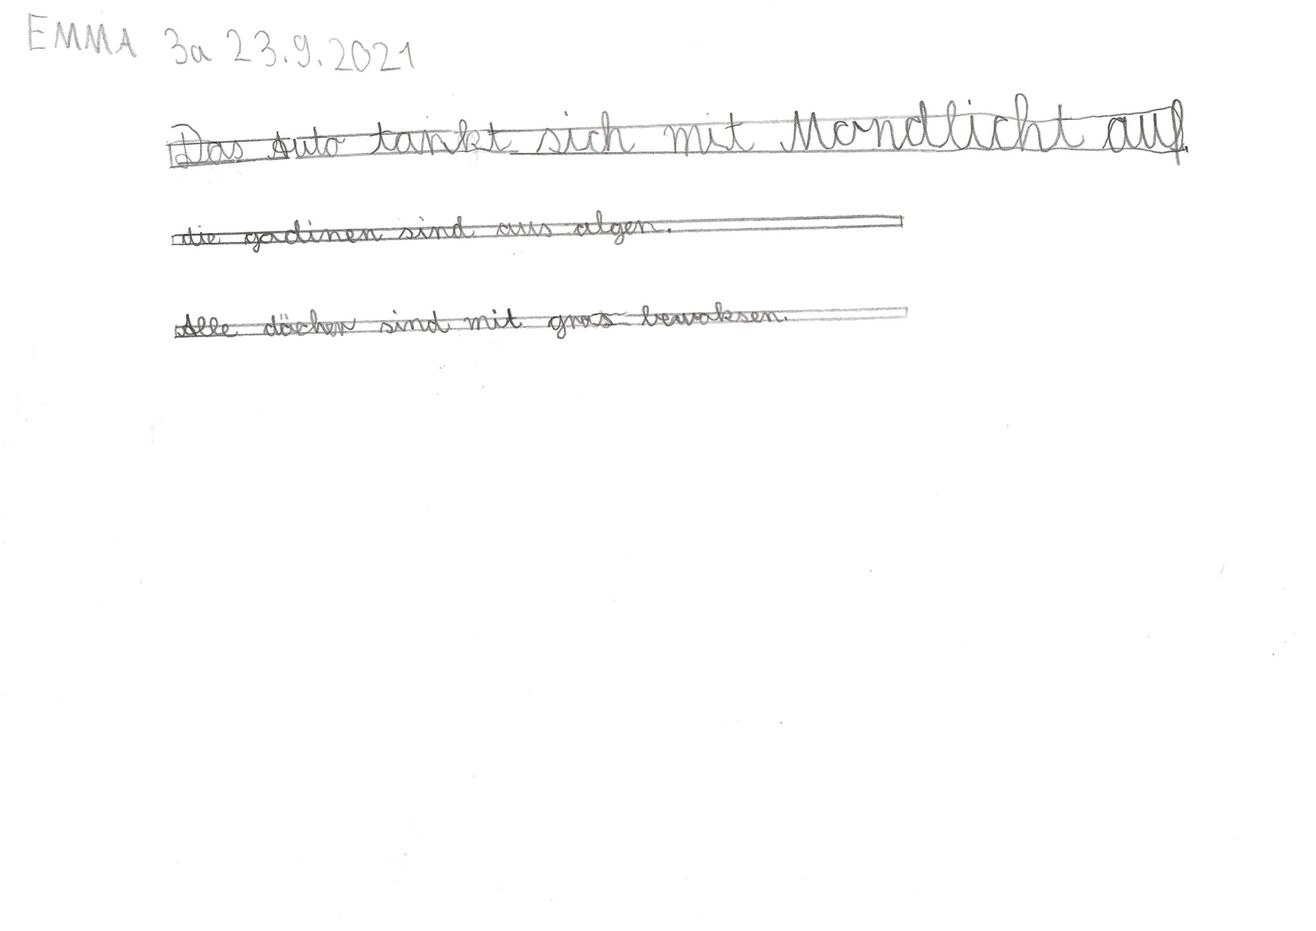 EMMA 3a 23.9.2021
Das Auto tankt sich mit Mondlicht auf.
die gadinen sind aus algen.
Alle dächer sind mit gras bewaksen.